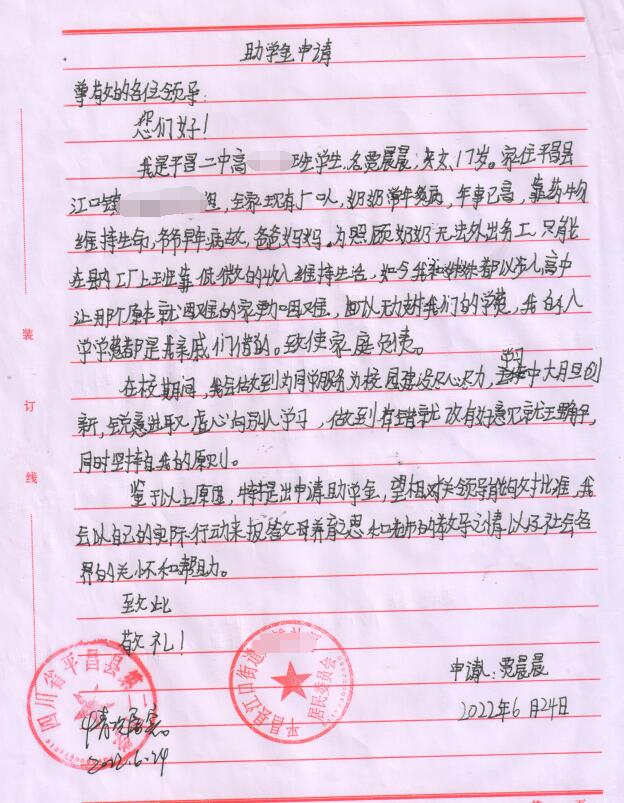 助学金申请
尊敬的各位领导:
您们好!
我是平昌二中高 班学生,名贾晨晨;女,17岁。家住平昌县
江口镇 组,全家现有 口人,奶奶常年多病,年事已高,靠药物
维持生命,爷爷早年病故,爸爸妈妈为照顾奶奶无法外出务工,只能
在县内工厂上班靠低微的收入维持生活,如今我和妹妹都以步入高中
让那个原本就困难的家更加困难,难以支付我们的学费,我的入
学学费都是找亲戚们借的。致使家庭负债。
在校期间,我会做到为同学服务为校园建设尽心尽力,学习中大胆创
新,锐意进取虚心向别人学习,做到有错就改有好意见就主动听,
同时坚持自我的原则。
鉴于以上原因,特提出申请助学金,望相关领导能够批准,我
会以自己的实际行动来报答父母养育之恩和老师的教导之情以及社会各
界的关怀和帮助。
致此
敬礼!
申请人:贾晨晨
2022年6月24日
四川省平昌县第二
平昌县江口街道
居民委员会
情况属实。
2022.6.24
装
订
线